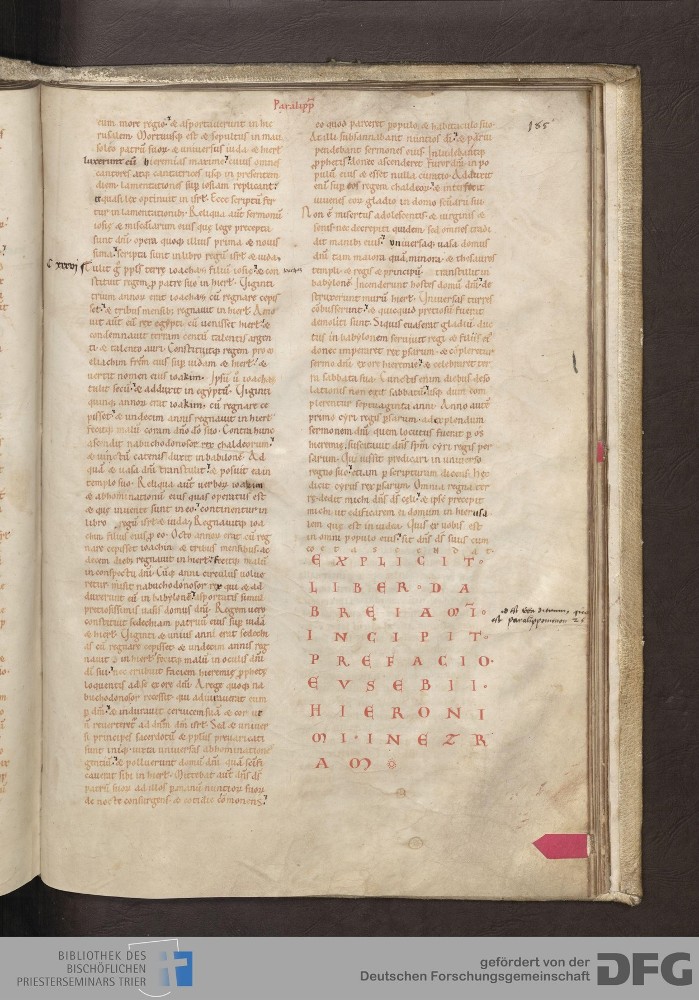 Paralipp
185
cum more regio & asportauerunt in hie
rusalem. Mortuusq; est & sepultus in mau
soleo patrū suor & uniuersus iuda & hierł
luxerunt eū hieremias maxime cuius omnes
cantores atq; cantatrices usq; in presentem
diem lamentationes sup iosiam replicant
& quasi lex optinuit in isrł. Ecce scriptū fer
tur in lamentationib; Reliqua aut sermonū
iosie & misc̄diarum eius que lege precepta
sunt dnī opera quoq; illius prima & nouis
sima scripta sunt in libro regū isrł & iuda
C xxxvi Tulit g ppłs terre ioachaz filiū iosie & con
stituit regem p patre suo in hierł. Uiginti
trium annor erat ioachaz cū regnare cepis
set & tribus mensib; regnauit in hierł. Amo
uit aut eū rex egypti cū uenisset hierł &
condemnauit terram centū talentis argen
ti & talento auri. Constituitq; regem pro eo
eliachim frēm eius sup iudam & hierł &
uertit nomen eius ioakim. Ipsū ū ioachaz
tulit secū & adduxit in egyptū. Uiginti
quinq; annor erat ioakim cū regnare ce
pisset & undecim annis regnauit in hierł
fecitq; malū coram dnō dō suo. Contra hunc
ascendit nabuchodonosor rex chaldeorum
& uinctū catenis duxit in babylonē. Ad
quā & uasa dnī transtulit & posuit ea in
templo suo. Reliqua aut uerbor ioakim
& abhominationū eius quas operatus est
& que inuenta sunt in eo continentur in
libro regū isrł & iuda. Regnauitq; ioa
chin filius eius p eo. Octo annor erat cū reg
nare cepisset ioachin & tribus mensibus ac
decem dieb; regnauit in hierł fecitq; malū
in conspectu dnī. Cūq; anni circulus uolue
retur misit nabuchodonosor rex qui & ad
duxerunt eū in babylonē asportatis simul
preciosissimis uasis domus dnī. Regem uero
constituit sedechiam patruū eius sup iudā
& hierł. Uiginti & unius anni erat sedechi
as cū regnare cepisset & undecim annis reg
nauit in hierł fecitq; malū in oculis dnī
dī sui nec erubuit faciem hieremie pphete
loquentis ad se ex ore dnī. A rege quoq; na
buchodonosor recessit qui adiurauerat eum
p dm & indurauit ceruicem suā & cor ut
n reuerteret ad dnm dm isrł. Sed & uniuer
si principes sacerdotū & ppłus preuaricati
sunt iniq; iuxta uniuersas abhominationes
gentiū & polluerunt domū dnī quā scīfi
cauerat sibi in hierł. Mittebat aut dns ds
patrū suor ad illos p manū nuntior suor
de nocte consurgens & cotidie cōmonens
eo quod parceret populo & habitaculo suo.
At illi subsannabant nuntios dī & parui
pendebant sermones eius. Inludebantq;
pphetis donec ascenderet furor dnī in po
pulū eius & esset nulla curatio. Adduxit
enī sup eos regem chaldeor & interfecit
iuuenes eor gladio in domo scūarii sui
Non ē misertus adolescentis & uirginis &
senis nec decrepiti quidem sed omnes tradi
dit manib; eius. Vniuersaq; uasa domus
dnī tam maiora quā minora & thesauros
templi & regis & principū transtulit in
babylonē. Incenderunt hostes domū dnī de
struxerunt murū hierł. Uniuersas turres
cōbusserunt & quicquid preciosū fuerat
demoliti sunt. Siquis euaserat gladiū duc
tus in babylonem seruiuit regi & filiis ei
donec imperaret rex psarum & cōpleretur
sermo dnī ex ore hieremie & celebraret ter
ra sabbata sua. Cunctis enim diebus deso
lationis non egit sabbatū usq; dum com
plerentur septuaginta anni. Anno autē
primo cyri regis psarum ad explendum
sermonem dnī quem locutus fuerat p os
hieremie suscitauit dns spm cyri regis per
sarum. Qui iussit predicari in uniuerso
regno suo etiam p scripturam dicens. Hec
dicit cyrus rex psarum. Omnia regna ter
re dedit michi dns ds celi & ipse precepit
michi ut edificarem ei domum in hierusa
lem que est in iudea. Quis ex uobis est
in omni populo eius sit dns ds suus cum
eo & ascendat
EXPLICIT·
LIBER·DA
BREIAMĪ·
INCIPIT·
PREFACIO·
EVSEBII·
HIERONI
MI·INEZR
AM